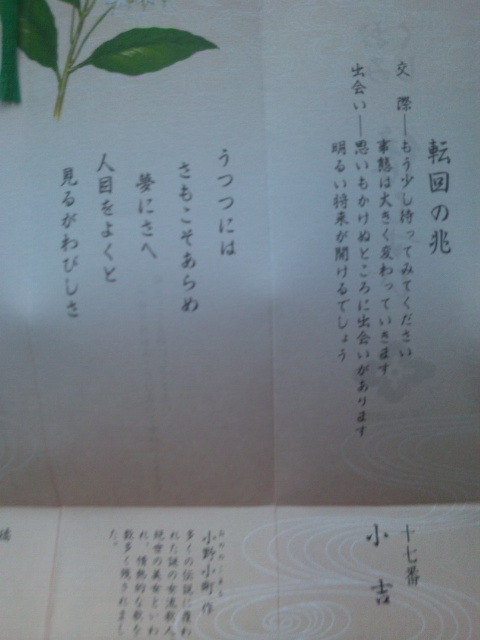 転回の兆
交 際―もう少し待ってみてください
事態は大きく変わっていきます
出会い―思いもかけぬところに出会いがあります
明るい将来が開けるでしょう
うつつには
さもこそあらめ
夢にさへ
人目をよくと
見るがわびしさ
十七番
小吉
小野小町 作
多くの伝説に覆わ
れた謎の女流歌人
絶世の美女といわ
れ、情熱的な歌を
数多く残されまし
た。